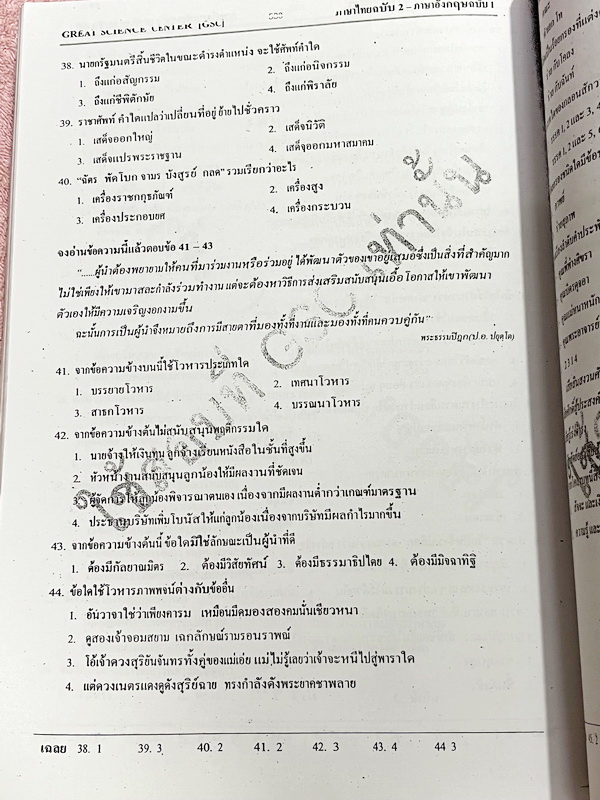 GREAT SCIENCE CENTER [GSC]
ภาษาไทยฉบับ 2 – ภาษาอังกฤษฉบับ 1
38. นายกรัฐมนตรีสิ้นชีวิตในขณะดำรงตำแหน่ง จะใช้ศัพท์คำใด
1. ถึงแก่อสัญกรรม 2. ถึงแก่อนิจกรรม
3. ถึงแก่ชีพิตักษัย 4. ถึงแก่พิราลัย
39. ราชาศัพท์ คำใดแปลว่าเปลี่ยนที่อยู่ ย้ายไปชั่วคราว
1. เสด็จออกใหญ่ 2. เสด็จนิวัติ
3. เสด็จแปรพระราชฐาน 4. เสด็จออกมหาสมาคม
40. "ฉัตร พัดโบก จามร บังสูรย์ กลด" รวมเรียกว่าอะไร
1. เครื่องราชกกุธภัณฑ์ 2. เครื่องสูง
3. เครื่องประกอบยศ 4. เครื่องกระบวน
จงอ่านข้อความนี้แล้วตอบข้อ 41 – 43
"......ผู้นำต้องพยายามให้คนที่มาร่วมงานหรือร่วมอยู่ ได้พัฒนาตัวของเขาอยู่เสมอซึ่งเป็นสิ่งที่สำคัญมาก
ไม่ใช่เพียงให้เขามาสละกำลังร่วมทำงาน แต่จะต้องหาวิธีการส่งเสริมสนับสนุนเอื้อโอกาสให้เขาพัฒนา
ตัวเองให้มีความเจริญงอกงามขึ้น
ฉะนั้นการเป็นผู้นำจึงหมายถึงการมีสายตาที่มองทั้งที่งานและมองทั้งที่คนควบคู่กัน"
พระธรรมปิฎก(ป.อ. ปยุตฺโต)
41. จากข้อความข้างบนนี้ใช้โวหารประเภทใด
1. บรรยายโวหาร 2. เทศนาโวหาร
3. สาธกโวหาร 4. บรรณนาโวหาร
42. จากข้อความข้างต้นไม่สนับสนุนพฤติกรรมใด
1. นายจ้างให้เงินทุน ลูกจ้างเรียนหนังสือในชั้นที่สูงขึ้น
2. หัวหน้างานสนับสนุนลูกน้องให้มีผลงานที่ชัดเจน
3. ผู้จัดการให้ลูกน้องพิจารณาตนเอง เนื่องจากมีผลงานต่ำกว่าเกณฑ์มาตรฐาน
4. ประธานบริษัทเพิ่มโบนัสให้แก่ลูกน้องเนื่องจากบริษัทมีผลกำไรมากขึ้น
43. จากข้อความข้างต้นนี้ ข้อใดมิใช่ลักษณะเป็นผู้นำที่ดี
1. ต้องมีกัลยาณมิตร 2. ต้องมีวิสัยทัศน์ 3. ต้องมีธรรมาธิปไตย 4. ต้องมีมิจฉาทิฐิ
44. ข้อใดใช้โวหารภาพพจน์ต่างกับข้ออื่น
1. อันวาจาใช่ว่าเพียงคารม เหมือนมีดมองสองคมนั้นเชียวหนา
2. ดูสองเจ้าจอมสยาม เฉกลักษณ์รามรอนราพณ์
3. โอ้เจ้าดวงสุริยันจันทรทั้งคู่ของแม่เอ่ย แม่ไม่รู้เลยว่าเจ้าจะหนีไปสู่พาราใด
4. แต่ดวงเนตรแดงดูดังสุริย์ฉาย ทรงกำลังดังพระยาคชาพลาย
เฉลย 38. 1 39. 3 40. 2 41. 2 42. 3 43. 4 44 3